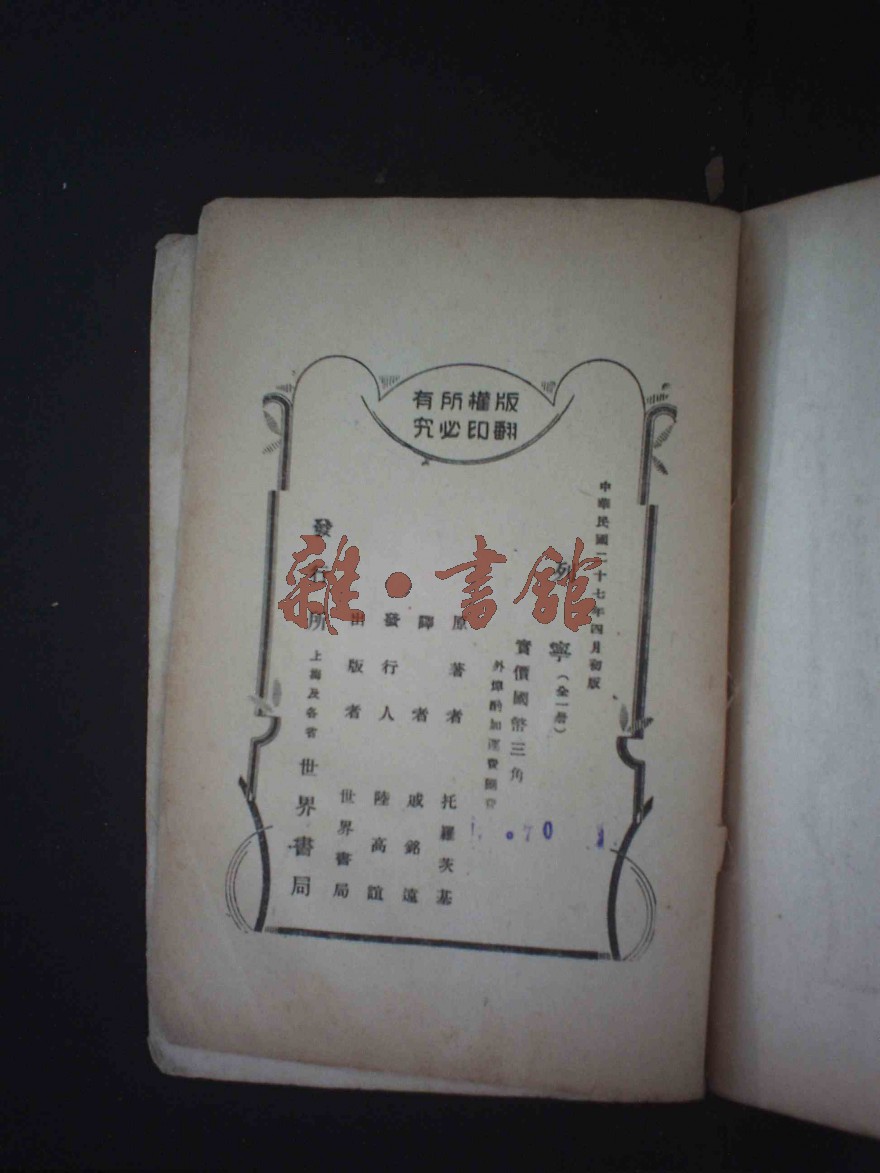 版權所有
翻印必究
中華民國二十七年四月初版
列寧（全一册）
實價國幣三角
外埠酌加運費匯費
原著者 托羅茨基
譯者 戚銘遠
發行人 陸高誼
出版者 世界書局
發行所 上海及各省 世界書局
.70
雜·書館